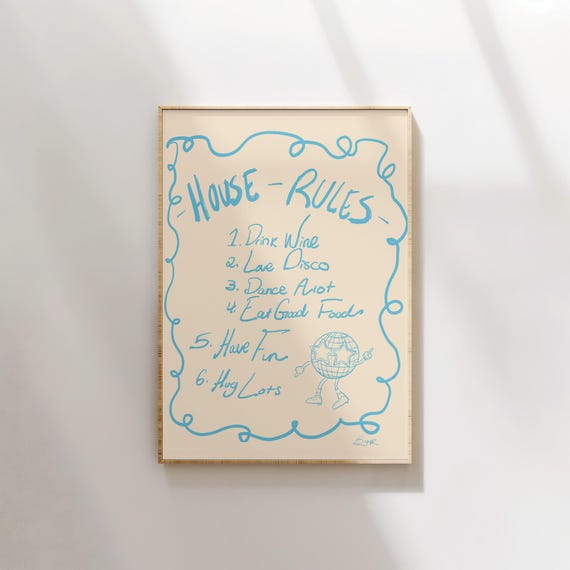 - HOUSE - RULES -
1. Drink Wine
2. Love Disco
3. Dance A lot
4. Eat Good Foods
5. Have Fun
6. Hug Lots